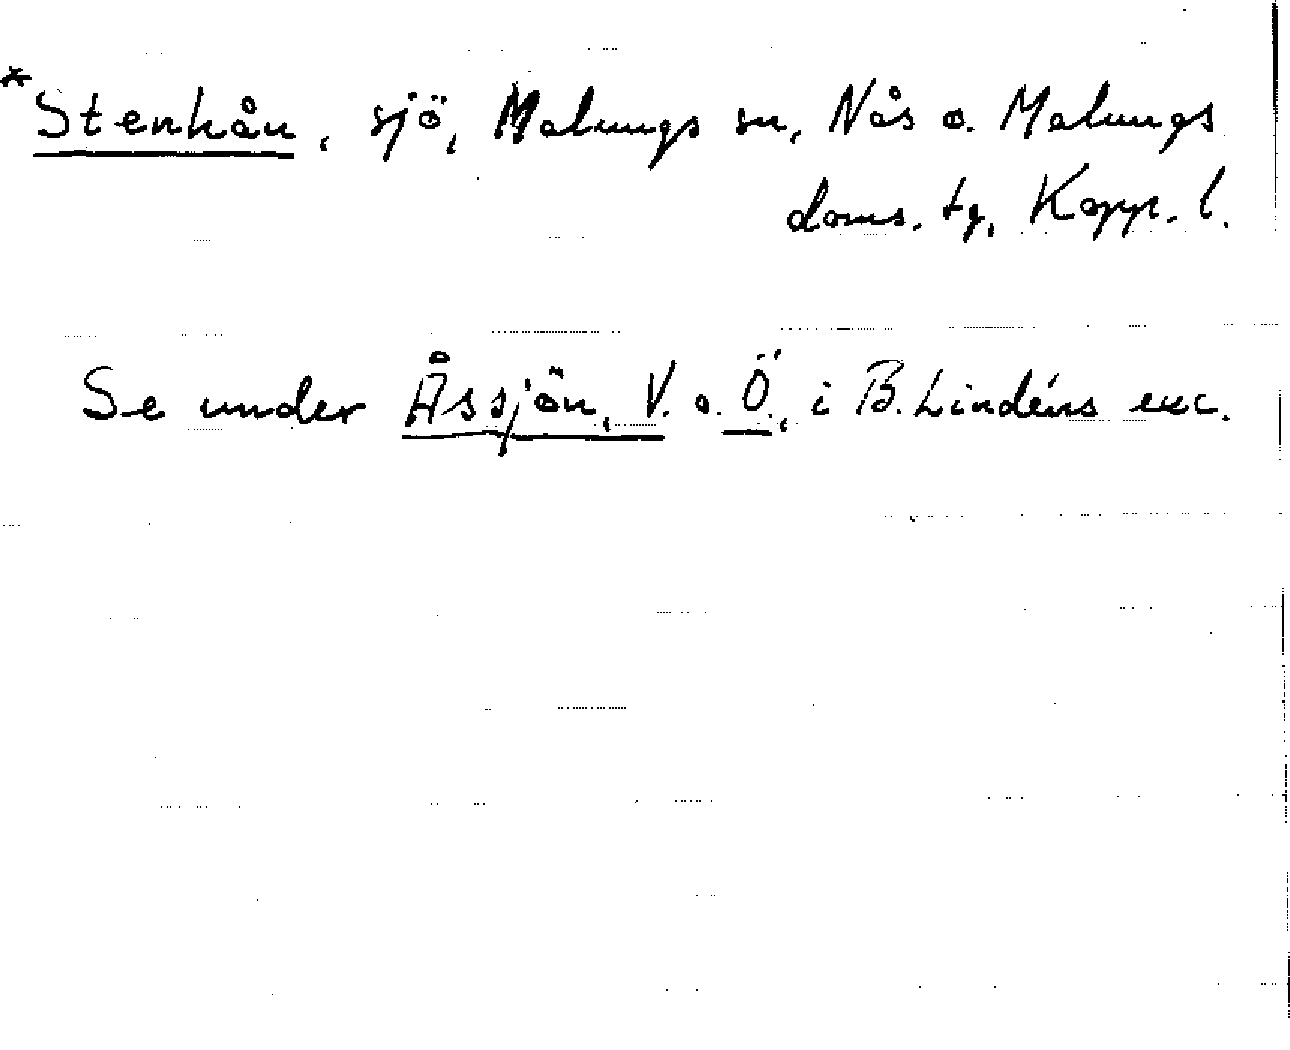 *Stenhån, sjö, Malungs sn, Nås o. Malungs
doms. tg, Kopp. l.
Se under Åssjön, V. o. Ö., i B. Lindéns exc.